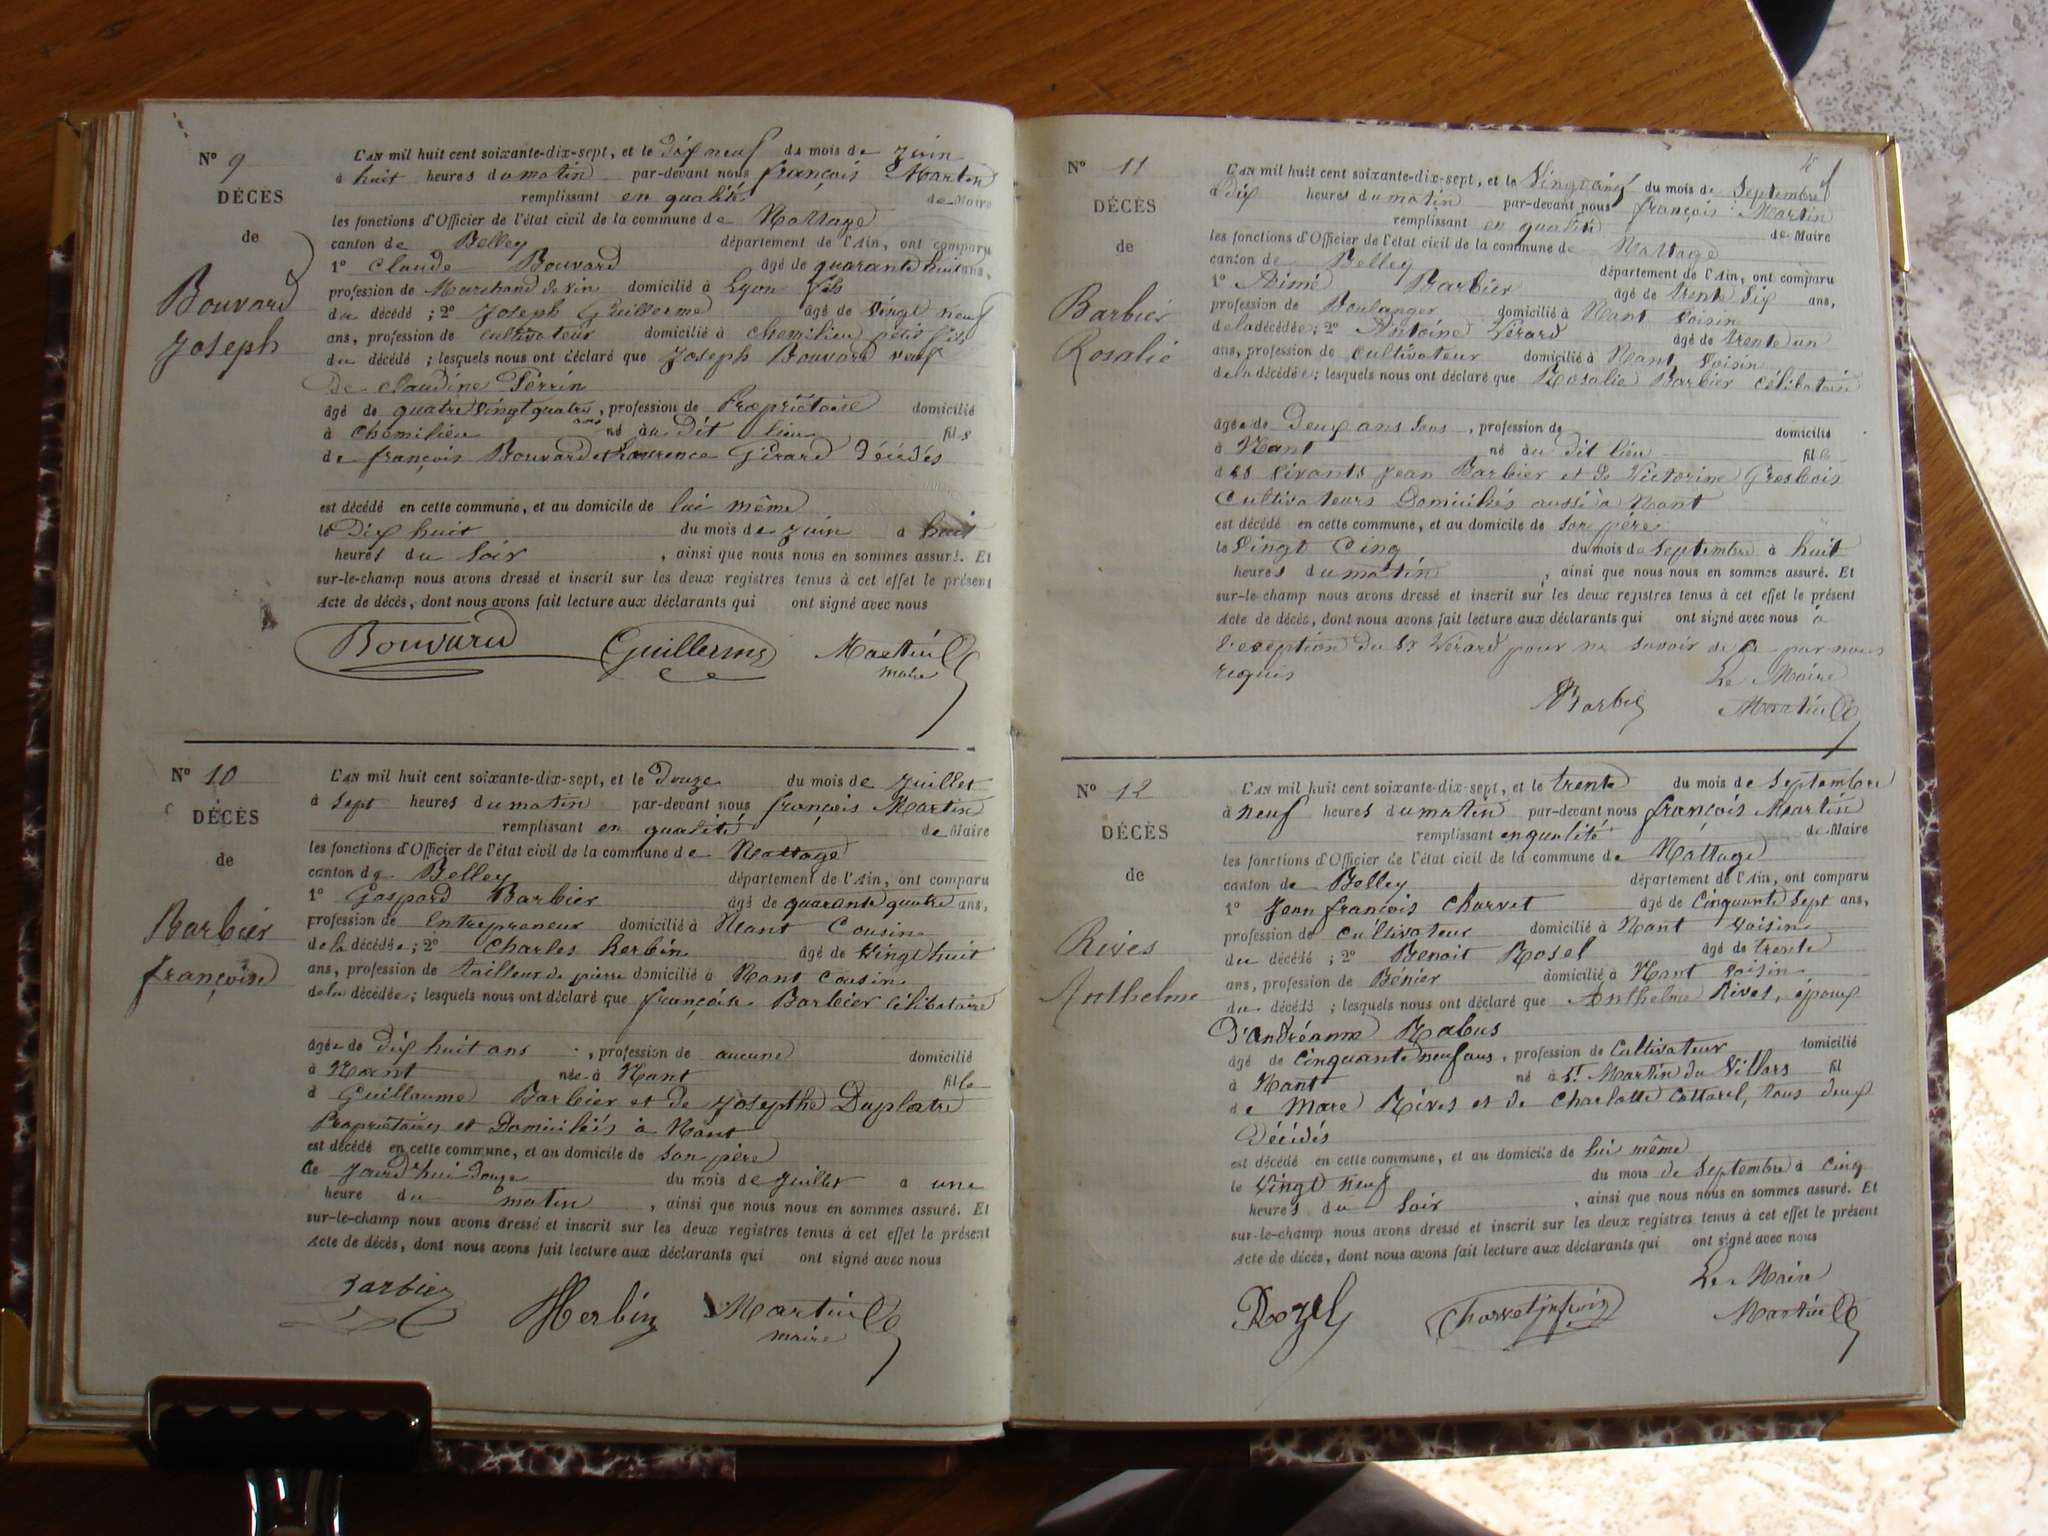 N° 9
DÉCÈS
de
Bouvard
Joseph
L'AN mil huit cent soixante-dix-sept, et le dix neuf du mois de juin
à huit heures du matin par-devant nous françois Martin
remplissant en qualité de Maire
les fonctions d'Officier de l'état civil de la commune de Nattage
canton de Belley département de l'Ain, ont comparu
1° Claude Bouvard âgé de quarante huit ans,
profession de Marchand de vin domicilié à Lyon fils
du décédé ; 2° Joseph Guillerme âgé de vingt neuf
ans, profession de cultivateur domicilié à chemilieu petit fils
du décédé ; lesquels nous ont déclaré que Joseph Bouvard veuf
De claudine Perrin
âgé de quatre vingt quatre ans, profession de Propriétaire domicilié
à Chemilieu né au dit lieu fils
de françois Bouvard et Laurence Girard Décédés
est décédé en cette commune, et au domicile de lui même
le Dix huit du mois de juin à huit
heures du soir, ainsi que nous nous en sommes assuré. Et
sur-le-champ nous avons dressé et inscrit sur les deux registres tenus à cet effet le présent
Acte de décès, dont nous avons fait lecture aux déclarants qui ont signé avec nous
Bouvard Guillerme Martin
maire
N° 10
DÉCÈS
de
Barbier
françoise
L'AN mil huit cent soixante-dix-sept, et le douze du mois de juillet
à sept heures du matin par-devant nous françois Martin
remplissant en qualité de Maire
les fonctions d'Officier de l'état civil de la commune de Nattage
canton de Belley département de l'Ain, ont comparu
1° Gaspard Barbier âgé de quarante quatre ans,
profession de Entrepreneur domicilié à Nant Cousin
de la décédée ; 2° Charles herbin âgé de vingt huit
ans, profession de tailleur de pierre domicilié à Nant cousin
de la décédée ; lesquels nous ont déclaré que françoise Barbier célibataire
âgée de dix huit ans, profession de aucune domicilié
à Nant née à Nant fille
d Guillaume Barbier et de Josephte Duplatre
Propriétaires et Domiciliés à Nant
est décédé en cette commune, et au domicile de son père
Ce jourd'hui douze du mois de juillet à une
heure du matin, ainsi que nous nous en sommes assuré. Et
sur-le-champ nous avons dressé et inscrit sur les deux registres tenus à cet effet le présent
Acte de décès, dont nous avons fait lecture aux déclarants qui ont signé avec nous
Barbier Herbin Martin
maire
N° 11
DÉCÈS
de
Barbier
Rosalie
L'AN mil huit cent soixante-dix-sept, et le vingt cinq du mois de septembre
à Dix heures du matin par-devant nous françois Martin
remplissant en qualité de Maire
les fonctions d'Officier de l'état civil de la commune de Nattage
canton de Belley département de l'Ain, ont comparu
1° Aimé Barbier âgé de trente six ans,
profession de Boulanger domicilié à Nant voisin
de la décédée ; 2° Antoine Vérard âgé de trente un
ans, profession de cultivateur domicilié à Nant voisin
de la décédée ; lesquels nous ont déclaré que Rosalie Barbier célibataire
âgée de Deux ans, profession de domicilié
à Nant né au dit lieu fille
des vivants Jean Barbier et de Victorine Grosbois
Cultivateurs Domiciliés aussi à Nant
est décédé en cette commune, et au domicile de son père
le vingt cinq du mois de septembre à huit
heures du matin, ainsi que nous nous en sommes assuré. Et
sur-le-champ nous avons dressé et inscrit sur les deux registres tenus à cet effet le présent
Acte de décès, dont nous avons fait lecture aux déclarants qui ont signé avec nous à
l'exception du Sr Vérard pour ne savoir de ce par nous
requis Le Maire
Barbier Martin
N° 12
DÉCÈS
de
Rives
Anthelme
L'AN mil huit cent soixante-dix-sept, et le trente du mois de septembre
à neuf heures du matin par-devant nous françois Martin
remplissant en qualité de Maire
les fonctions d'Officier de l'état civil de la commune de Nattage
canton de Belley département de l'Ain, ont comparu
1° Jean françois Charvet âgé de Cinquante sept ans,
profession de cultivateur domicilié à Nant voisin
du décédé ; 2° Benoit Rosel âgé de trente
ans, profession de domicilié à Nant voisin
du décédé ; lesquels nous ont déclaré que Anthelme Rives, époux
D'Andréanne Rabus
âgé de cinquante neuf ans, profession de Cultivateur domicilié
à Nant né à St Martin du Villars fil
de Marc Rives et de Charlotte Cottarel, tous deux
Décédés
est décédé en cette commune, et au domicile de lui même
le vingt neuf du mois de septembre à cinq
heures du soir, ainsi que nous nous en sommes assuré. Et
sur-le-champ nous avons dressé et inscrit sur les deux registres tenus à cet effet le présent
Acte de décès, dont nous avons fait lecture aux déclarants qui ont signé avec nous
Le Maire
Rozel Charvet Martin